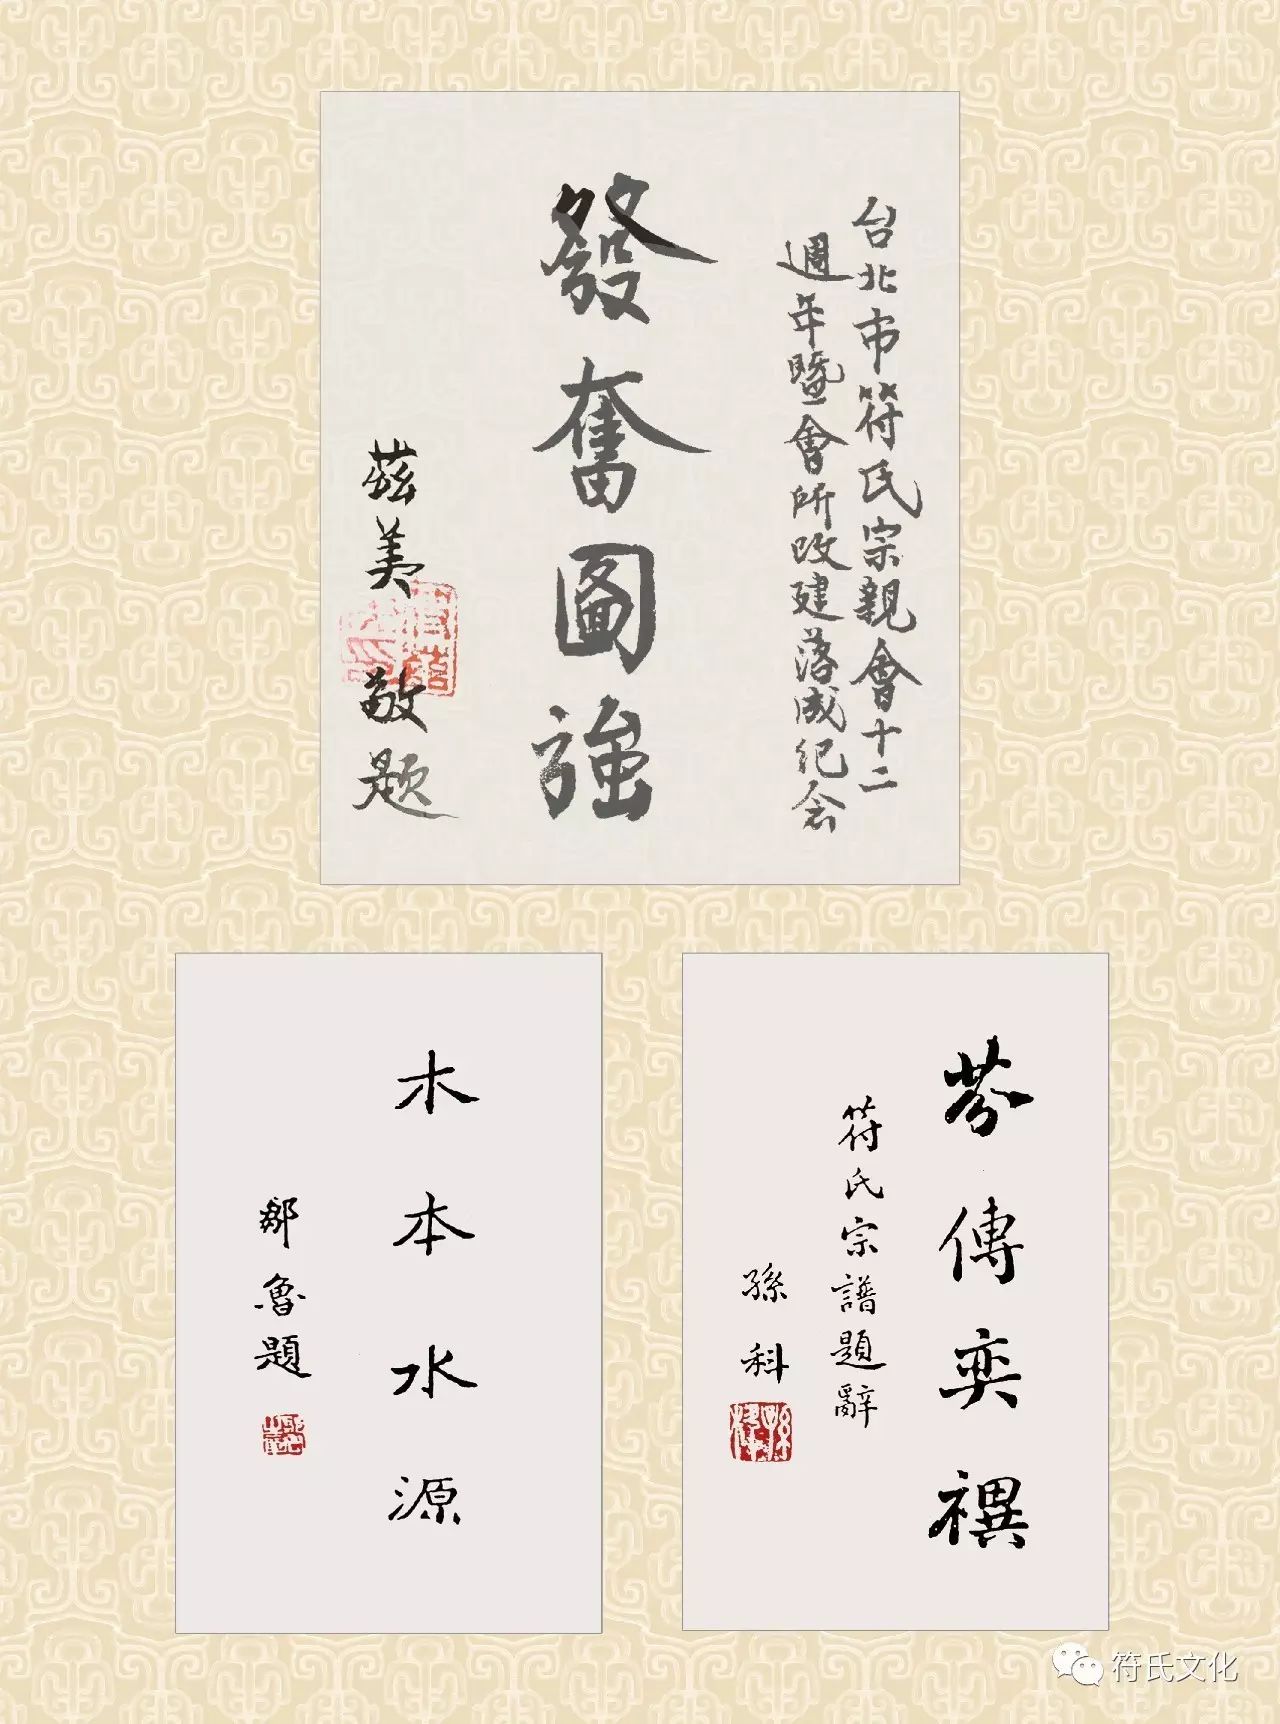 台北市符氏宗親會十二
週年暨會所改建落成纪念
發奮圖強
茲美敬题
芬傳奕禩
符氏宗譜題辭
孫科
木本水源
鄒魯題
符氏文化